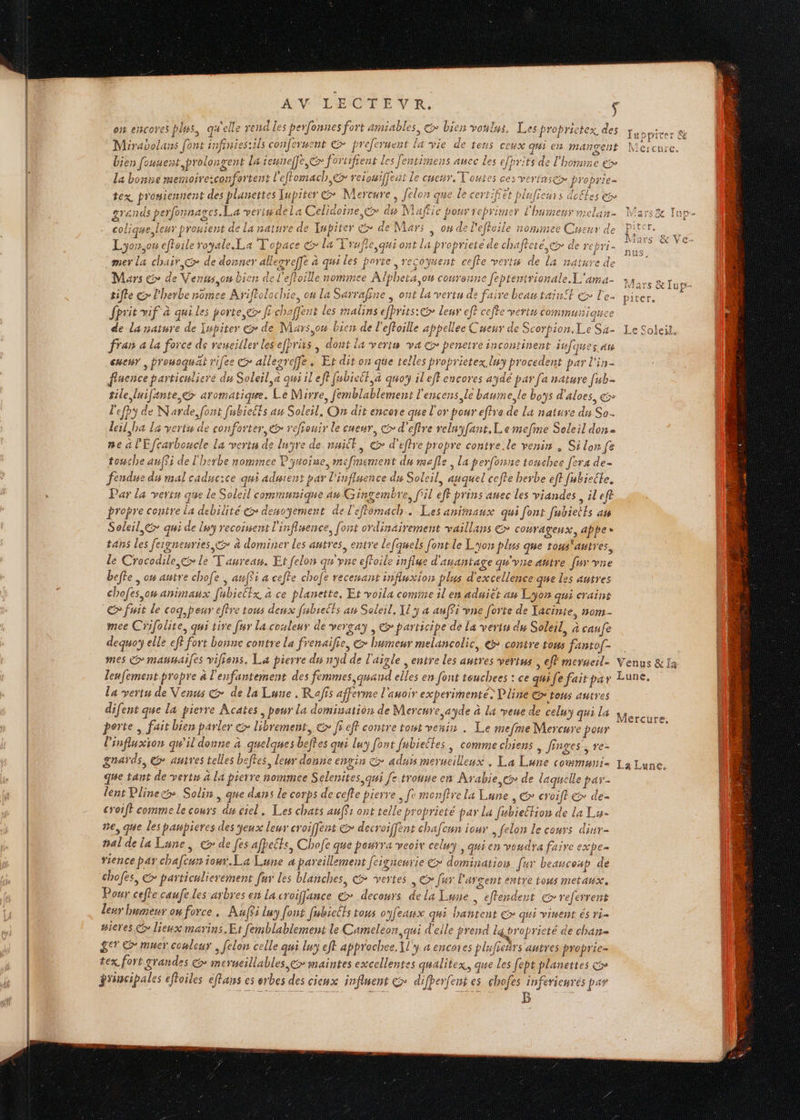 AV LECTEVR. 5
on encores plus, qu'elle rend les personnes fort amiables, & bien voulus. Les proprietez des
Mirabolans sont infinies:ils conseruent & preseruent la vie de tous ceux qui en mangent
bien souuent, prolongent la ieunesse, & fortifient les sentimens auec les esprits de l'homme &
la bonne memoire:confortent l'estomach, & reiouissent le cueur. Toutes ces vertus & proprie-
tez prouiennent des planettes Iupiter & Mercure, selon que le certifiët plusieurs doctes &
grands personnages. La vertu de la Celidoine, & du Mastic pour reprimer l'humeur melan-
colique, leur prouient de la nature de Iupiter & de Mars, ou de l'estoile nommee Cueur de
Lyon, ou estoile royale. La Topace & la Truffe, qui ont la proprieté de chasteté, & de repri-
mer la chair, & de donner allegresse à qui les porte, reçoyuent ceste vertu de la nature de
Mars & de Venus, ou bien de l'estoille nommee Alpheta, ou couronne septentrionale. L'ama-
tiste & l'herbe nõmee Aristolochie, ou la Sarrasine, ont la vertu de faire beau tainct & l'e-
sprit vif à qui les porte, & si chassent les malins esprits: & leur est ceste vertu communiquee
de la nature de Iupiter & de Mars, ou bien de l'estoille appellee Cueur de Scorpion. Le Sa-
fran a la force de reueiller les esprits, dont la vertu va & penetre incontinent iusques au
cueur, prouoquãt risee & allegresse. Et dit on que telles proprietez luy procedent par l'in-
fluence particuliere du Soleil, à qui il est subiect, à quoy il est encores aydé par sa nature sub-
tile, luisante, & aromatique. Le Mirre, semblablement l'encens, le baume, le boys d'aloes, &
l'espy de Narde, sont subiects au Soleil. On dit encore que l'or pour estre de la nature du So-
leil, ha la vertu de conforter, & resiouir le cueur, & d'estre reluysant. Le mesme Soleil don-
ne à l'Escarboucle la vertu de luyre de nuict, & d'estre propre contre le venin. Si lon se
touche aussi de l'herbe nommee Pyuoine, mesmement du masle, la personne touchee sera de-
fendue du mal caducːce qui aduient par l'influence du Soleil, auquel ceste herbe est subiecte.
Par la vertu que le Soleil communique au Gingembre, s'il est prins auec les viandes, il est
propre contre la debilité & deuoyement de l'estomach. Les animaux qui sont subiects au
Soleil, & qui de luy recoiuent l'influence, sont ordinairement vaillans & courageux, appe-
tans les seigneuries, & à dominer les autres, entre lesquels sont le Lyon plus que tous autres,
le Crocodile, & le Taureau. Et selon qu'vne estoile influe d'auantage qu'vne autre sur vne
beste, ou autre chose, aussi a ceste chose receuant influxion plus d'excellence que les autres
choses, ou animaux subiectz à ce planette. Et voila comme il en aduiët au Lyon qui craint
& fuit le coq, pour estre tous deux subiects au Soleil. Il y a aussi vne sorte de Iacinte, nom-
mee Crisolite, qui tire sur la couleur de vergay, & participe de la vertu du Soleil, à cause
dequoy elle est fort bonne contre la frenaisie, & humeur melancolic, & contre tous fantos-
mes & mauuaises visions. La pierre du nyd de l'aigle, entre les autres vertus, est merueil-
leusement propre à l'enfantement des femmes, quand elles en sont touchees : ce qui se fait par
la vertu de Venus & de la Lune. Rasis afferme l'auoir experimenté: Pline & tous autres
disent que la pierre Acates, pour la domination de Mercure, ayde à la veue de celuy qui la
porte, fait bien parler & librement, & si est contre tout venin. Le mesme Mercure pour
l'influxion qu'il donne à quelques bestes qui luy sont subiectes, comme chiens, singes, re-
gnards, & autres telles bestes, leur donne engin & aduis merueilleux. La Lune communi-
que tant de vertu à la pierre nommee Selenites, qui se trouue en Arabie, & de laquelle par-
lent Pline & Solin, que dans le corps de ceste pierre, se monstre la Lune, & croist & de-
croist comme le cours du ciel. Les chats aussi ont telle proprieté par la subiection de la Lu-
ne, que les paupieres des yeux leur croissent & decroissent chascun iour, selon le cours diur-
nal de la Lune, & de ses aspects, Chose que pourra veoir celuy, qui en voudra faire expe-
rience par chascun iour. La Lune a pareillement seigneurie & domination sur beaucoup de
choses, & particulierement sur les blanches, & vertes, & sur l'argent entre tous metaux.
Pour ceste cause les arbres en la croissance & decours de la Lune, estendent & resserrent
leur humeur ou force. Aussi luy sont subiects tous oyseaux qui hantent & qui viuent és ri-
uieres & lieux marins. Et semblablement le Cameleon, qui d'elle prend la proprieté de chan-
ger & muer couleur, selon celle qui luy est approchee. Il y a encores plusieurs autres proprie-
tez fort grandes & merueillables, & maintes excellentes qualitez, que les sept planettes &
principales estoiles estans es orbes des cieux influent & dispersent es choses inferieures par
B
Iuppiter &
Mercure.
Mars & Iup-
piter.
Mars & Ve-
nus.
Mars & Iup-
piter.
Le Soleil.
Venus & la
Lune.
Mercure.
La Lune.